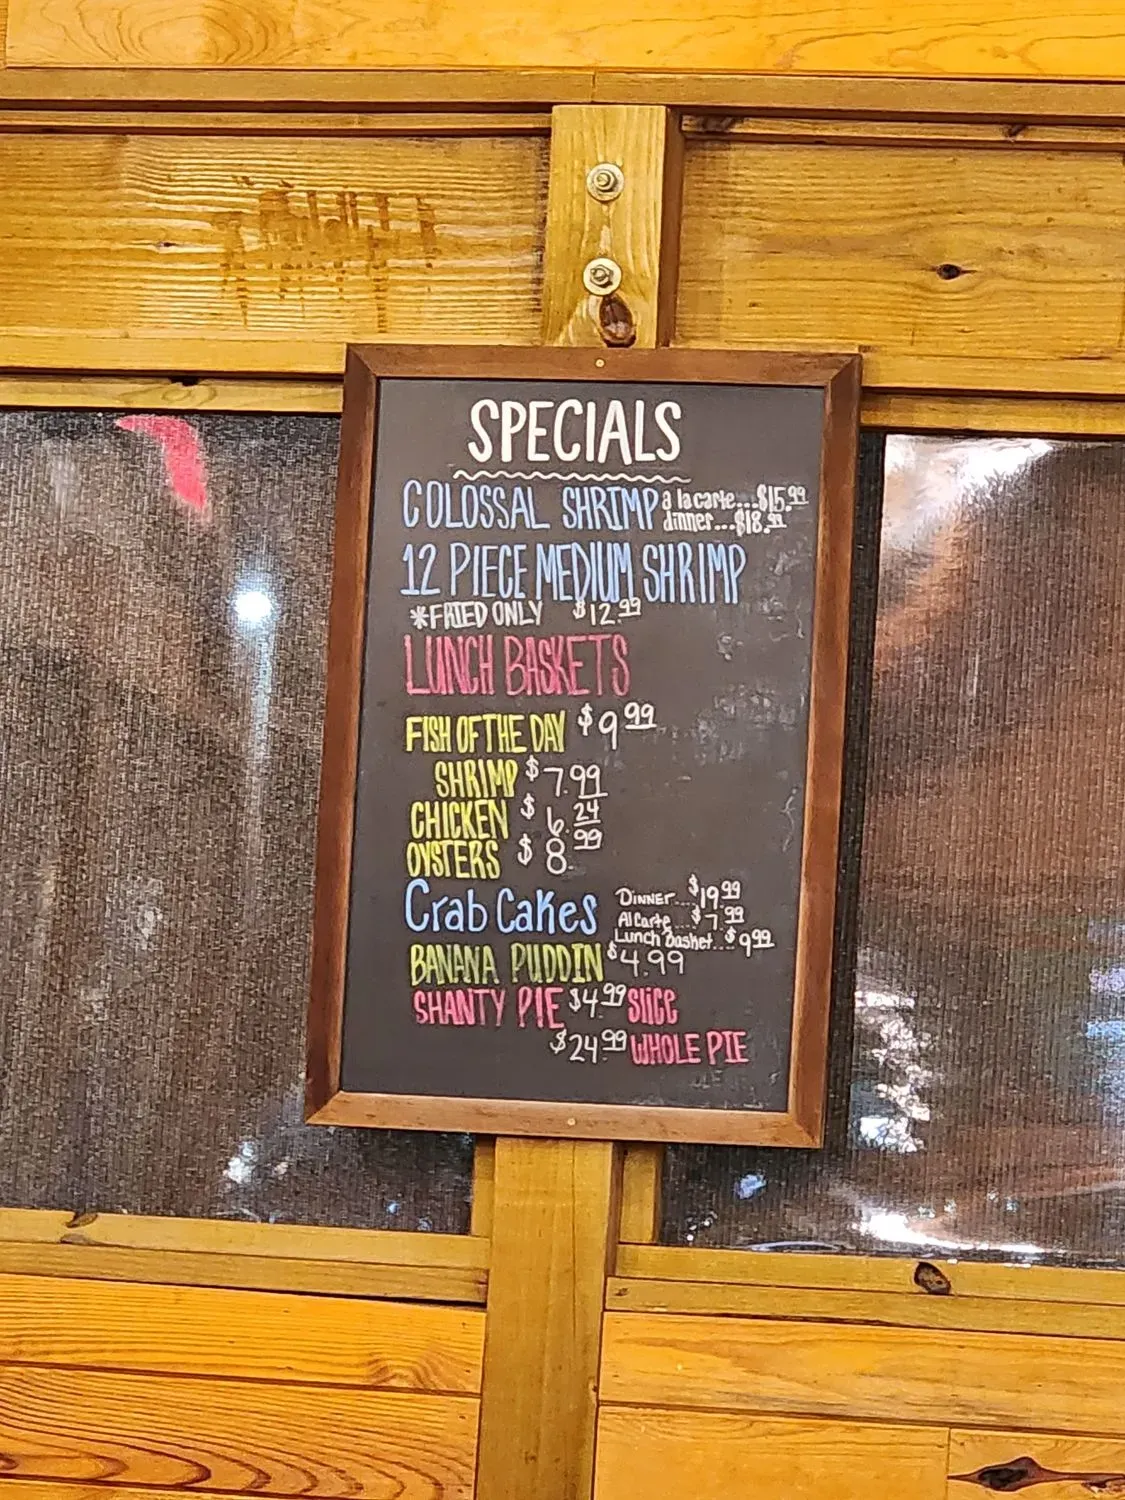 SPECIALS
COLOSSAL SHRIMP a la carte...$15.99
dinner...$18.99
12 PIECE MEDIUM SHRIMP
*FRIED ONLY $12.99
LUNCH BASKETS
FISH OF THE DAY $9.99
SHRIMP $7.99
CHICKEN $6.24
OYSTERS $8.99
Crab Cakes Dinner...$19.99
Al Carte...$7.99
Lunch Basket...$9.99
BANANA PUDDIN $4.99
SHANTY PIE $4.99 Slice
$24.99 WHOLE PIE